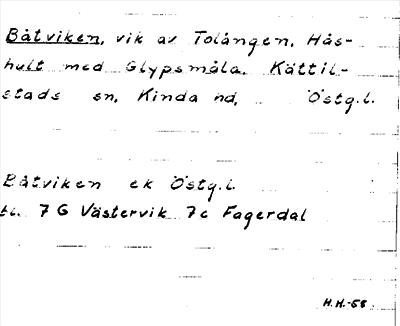 Båtviken, vik av Tolången, Hås-
hult med Glypsmåla. Kättil-
stads sn, Kinda hd, Östg.l.
Båtviken ek Östg.l.
bl. 7 G Västervik 7c Fagerdal
H.H.-58